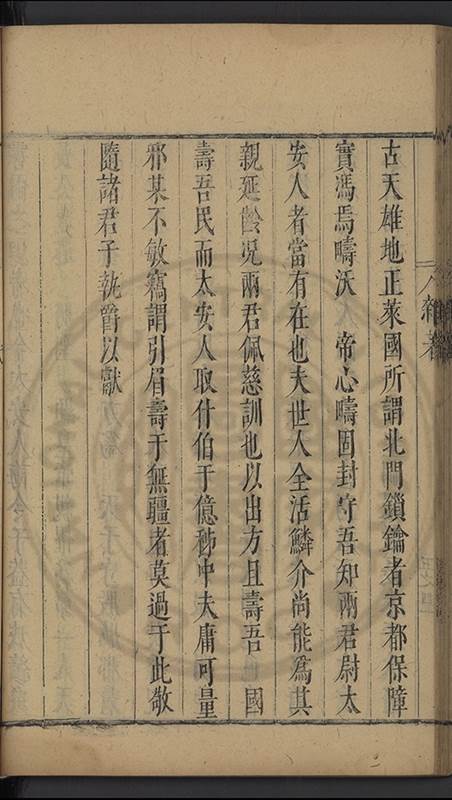 古天雄地正萊國所謂北門鎖鑰者京都保障
實馮焉疇沃　帝心疇固封守吾知兩君尉太
安人者當有在也夫世人全活鱗介尚能為其
親延齡況兩君佩慈訓也以出方且壽吾　國
壽吾民而太安人取什伯于億秭中夫庸可量
邪某不敏竊謂引眉壽于無疆者莫過于此敬
隨諸君子執爵以獻